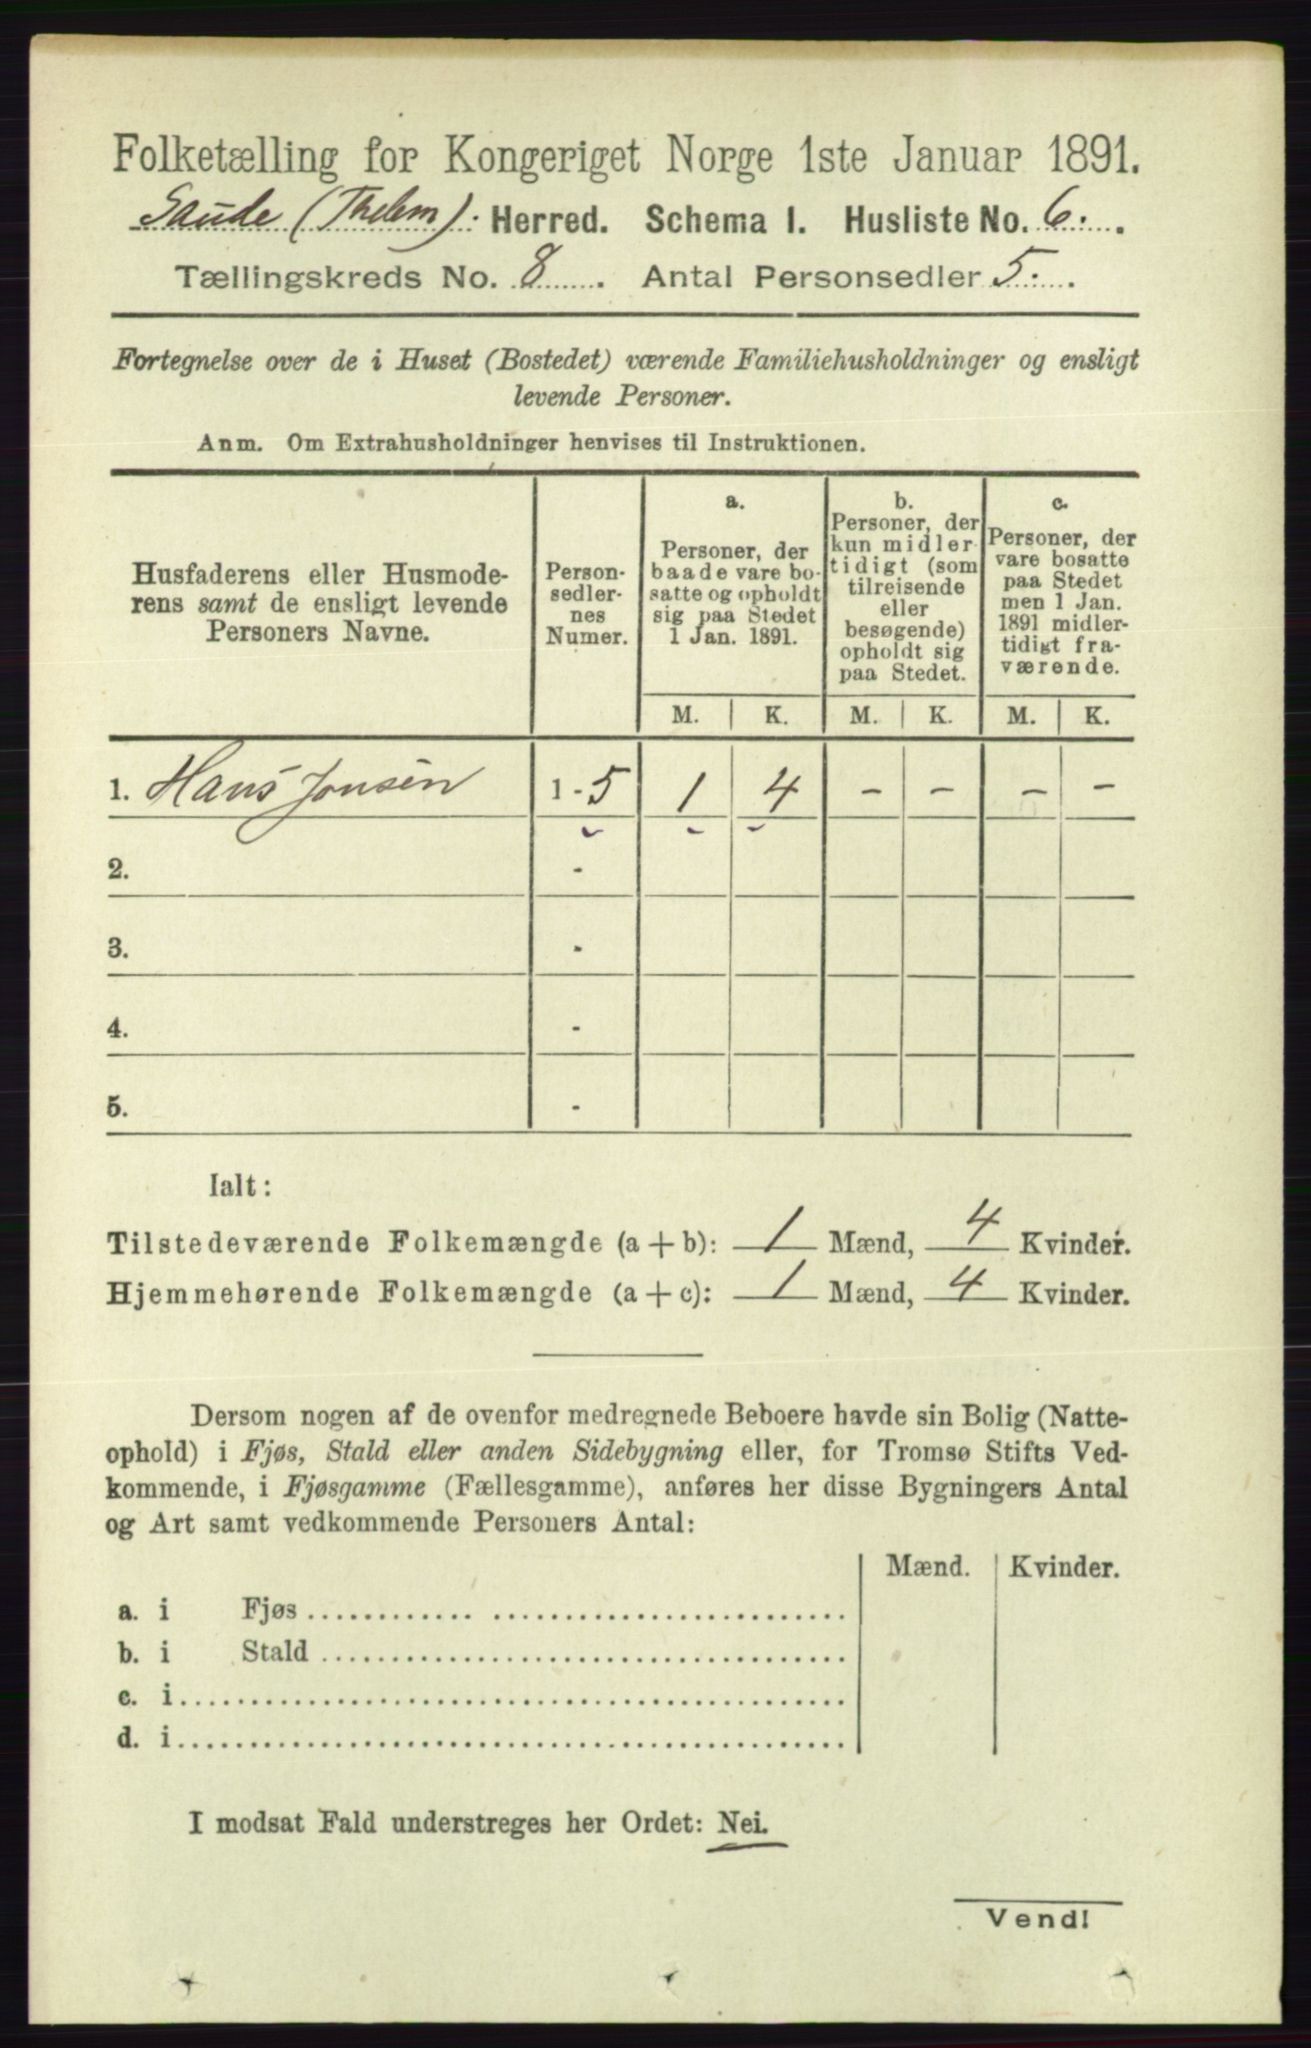 Folketælling for Kongeriget Norge 1ste Januar 1891.
Saude (Thelem). Herred. Schema I. Husliste No. 6.
Tællingskreds No. 8. Antal Personsedler 5.
Fortegnelse over de i Huset (Bostedet) værende Familiehusholdninger og ensligt
levende Personer.
Anm. Om Extrahusholdninger henvises til Instruktionen.
Husfaderens eller Husmode-
rens samt de ensligt levende
Personers Navne.
Person-
sedler-
nes
Numer.
a.
Personer, der
baade vare bo-
satte og opholdt
sig paa Stedet
1 Jan. 1891.
b.
Personer, der
kun midler-
tidigt (som
tilreisende
eller
besøgende)
opholdt sig
paa Stedet.
c.
Personer, der
vare bosatte
paa Stedet
men 1 Jan.
1891 midler-
tidigt fra-
værende.
M. K. M. K. M. K.
1. Hans Jonsen 1 - 5 1 4 - - - -
2. -
3. -
4. -
5. -
Ialt:
Tilstedeværende Folkemængde (a + b): 1 Mænd, 4 Kvinder.
Hjemmehørende Folkemængde (a + c): 1 Mænd, 4 Kvinder.
Dersom nogen af de ovenfor medregnede Beboere havde sin Bolig (Natte-
ophold) i Fjøs, Stald eller anden Sidebygning eller, for Tromsø Stifts Ved-
kommende, i Fjøsgamme (Fællesgamme), anføres her disse Bygningers Antal
og Art samt vedkommende Personers Antal:
Mænd. Kvinder.
a. i Fjøs
b. i Stald
c. i
d. i
I modsat Fald understreges her Ordet: Nei.
Vend!